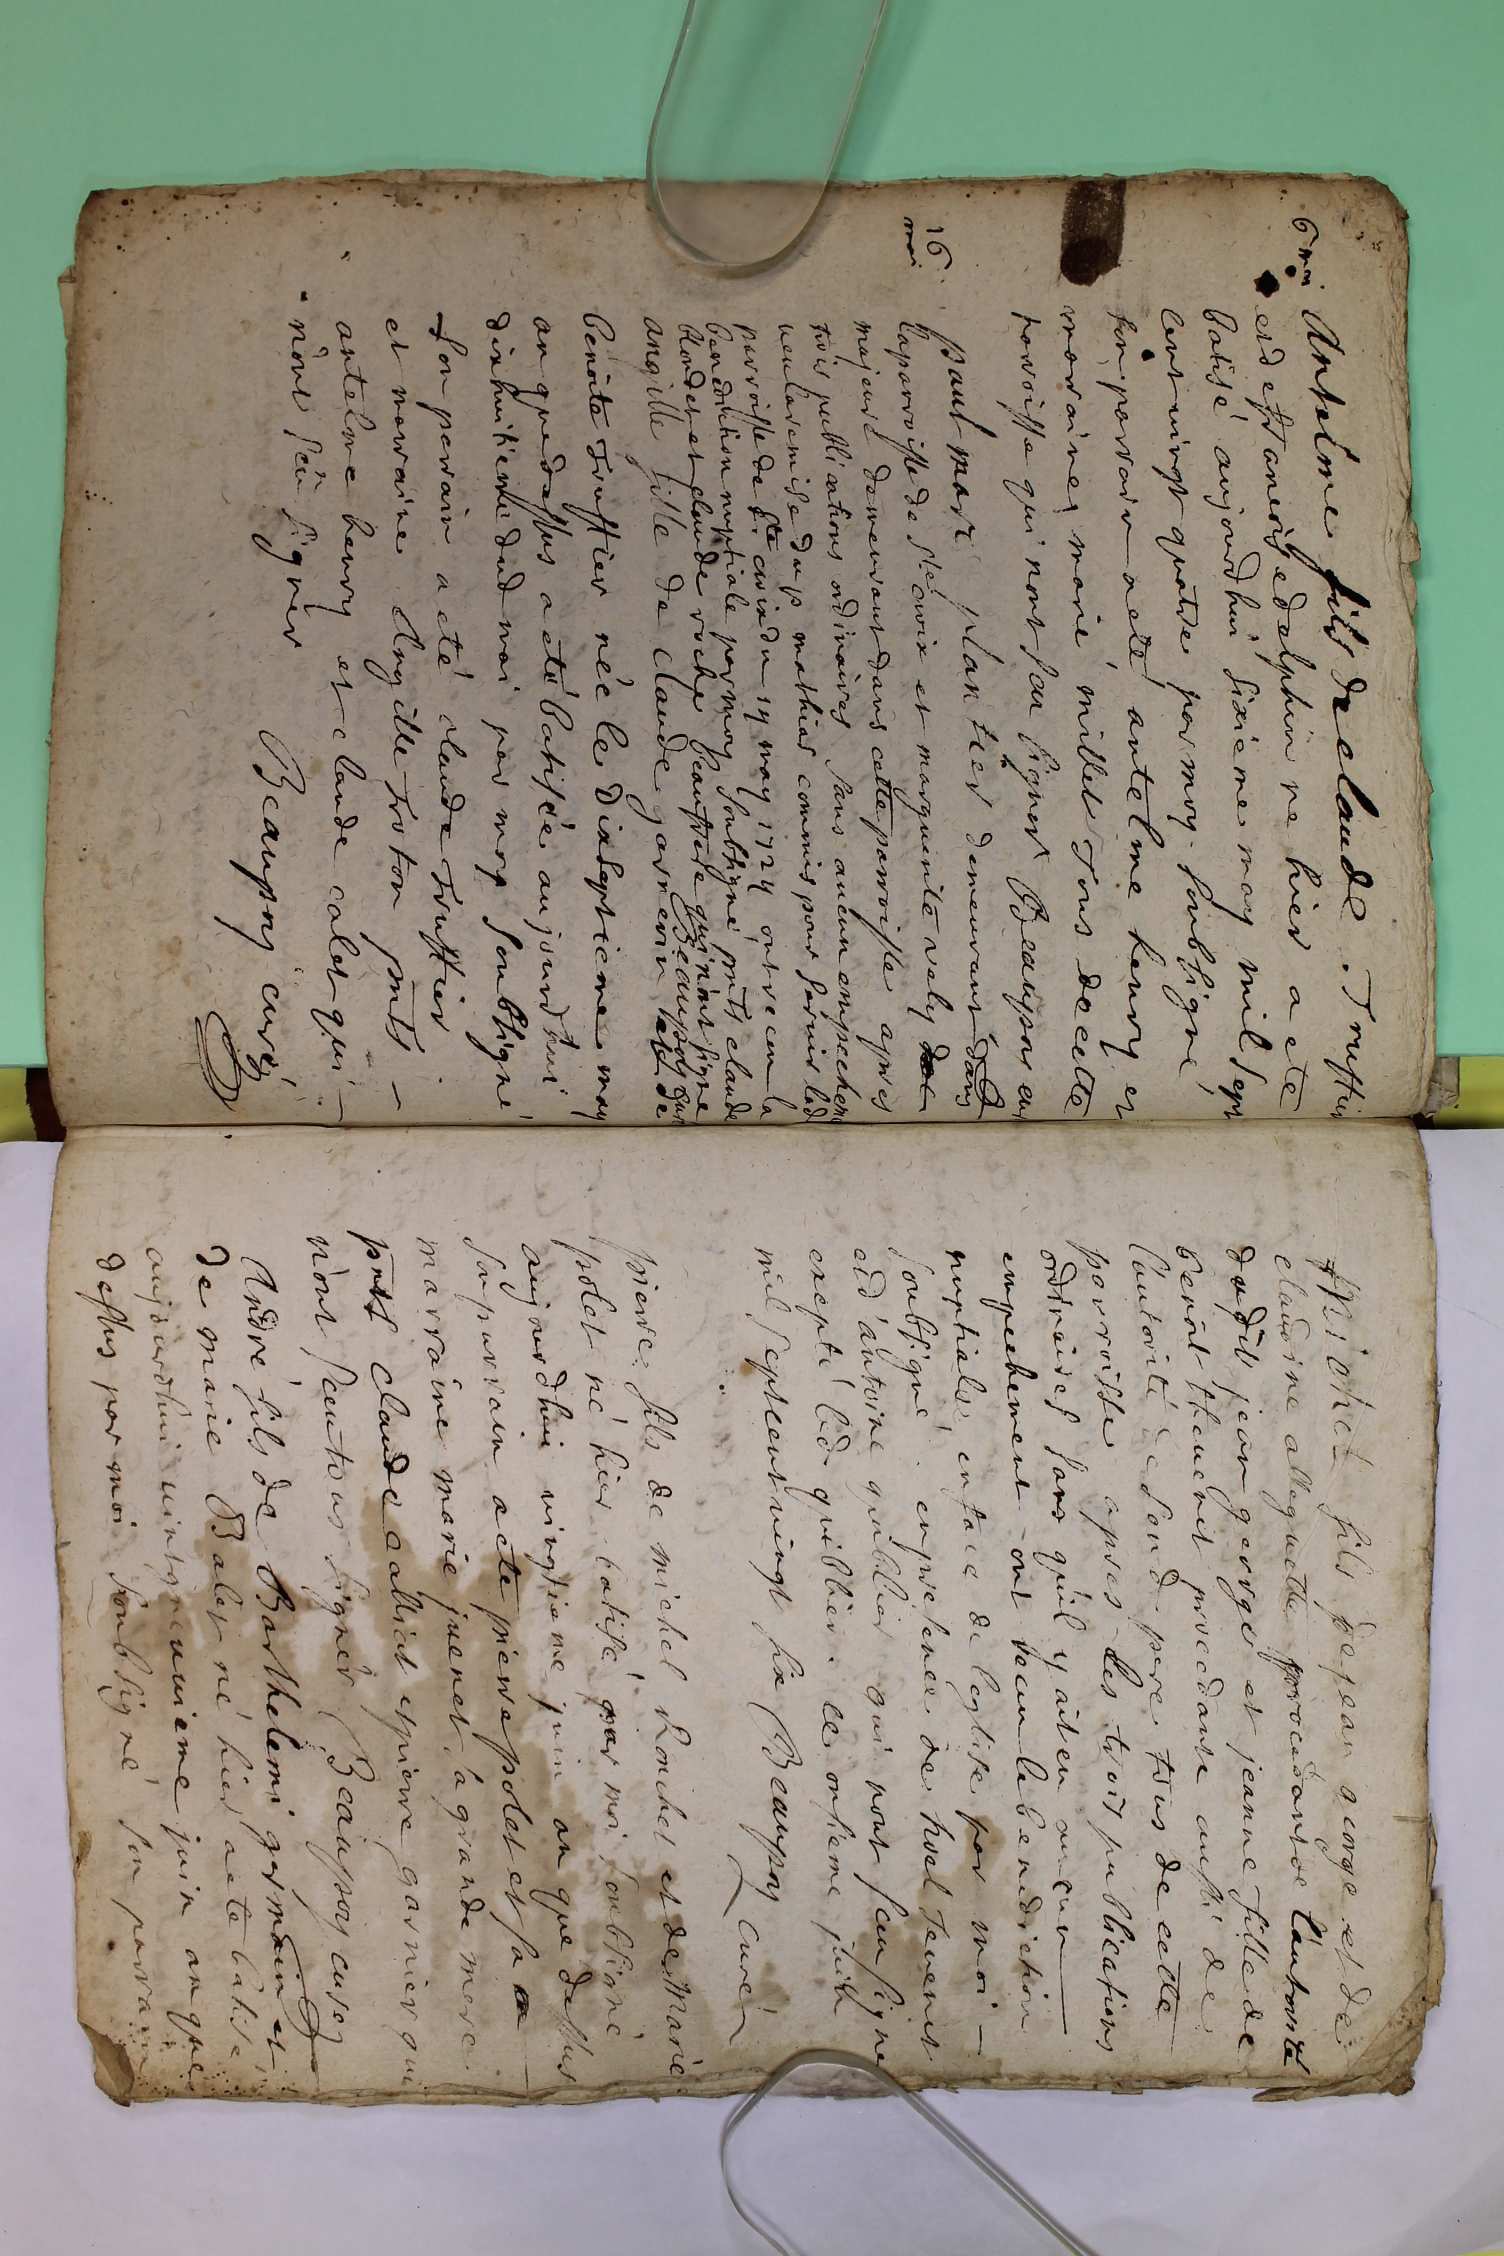 6 mai
Antelme fils de claude Truffier
et de francoise dalphin ne hier a ete
batisé aujourdhui sixieme may mil sept
cent vingt quatre par moy soubsigné
son parrain a ete antelme henry et
marraine marie millet tous de cette
parroisse qui n'ont sçu signer Beaupoy curé
16
mai
Paul marc plantier demeurant dans
la parroisse de Ste croix et marguerite valy
majeurs demeurant dans cette parroisse apres
trois publications ordinaires sans aucun empechem
veu la remise du p mathias commis pour servir lad
parroisse de Ste croix du 14 may 1724 ont receu la
benediction nuptiale par moy soubsigné pnts claude
blondet et claude roche qui n'ont signe
Beaupoy curé
angille fille de claude garnerin et de
benoite Truffier née le dixseptieme may
an que dessus a eté batisée aujourdhui
dixhuitieme dud mai par moy soubsigné
son parrain a eté claude Truffier
et marraine Angille Troton pnts
antelme henry et claude calet qui
n'ont sçu signer
Beaupoy curé
fils de jean george et de
claudine procedante de l'autorité
dudit jean george et jeanne fille de
benoit thevenit procedante aussi de
l'autorité de soud. pere tous de cette
parroisse apres les trois publications
ordinaires sans qu'il y ait eu aucun
empechement ont receu la benediction
nuptiale en face de leglise par moi
soubsigné en presence de noel Tevenit
et d'antoine quiblier qui n'ont sceu signe
excepté led quiblier. ce onsieme juin
mil sept cent vingt six Beaupoy curé
pierre fils de michel Lonchet et de marie
polet né hier batisé par moi soubsigné
aujourdhui vingtieme juin an que dessus
son parrain a ete pierre polet et sa
marraine marie juenet a grande mere.
pnts claude calliat et pierre garnier qui
n'ont sceu tous signer Beaupoy curé
André fils de Barthelemi germain et
de marie Balet né hier a ete batisé
aujourdhui vint uneunieme juin an que
dessus par moi soubsigné son parrain